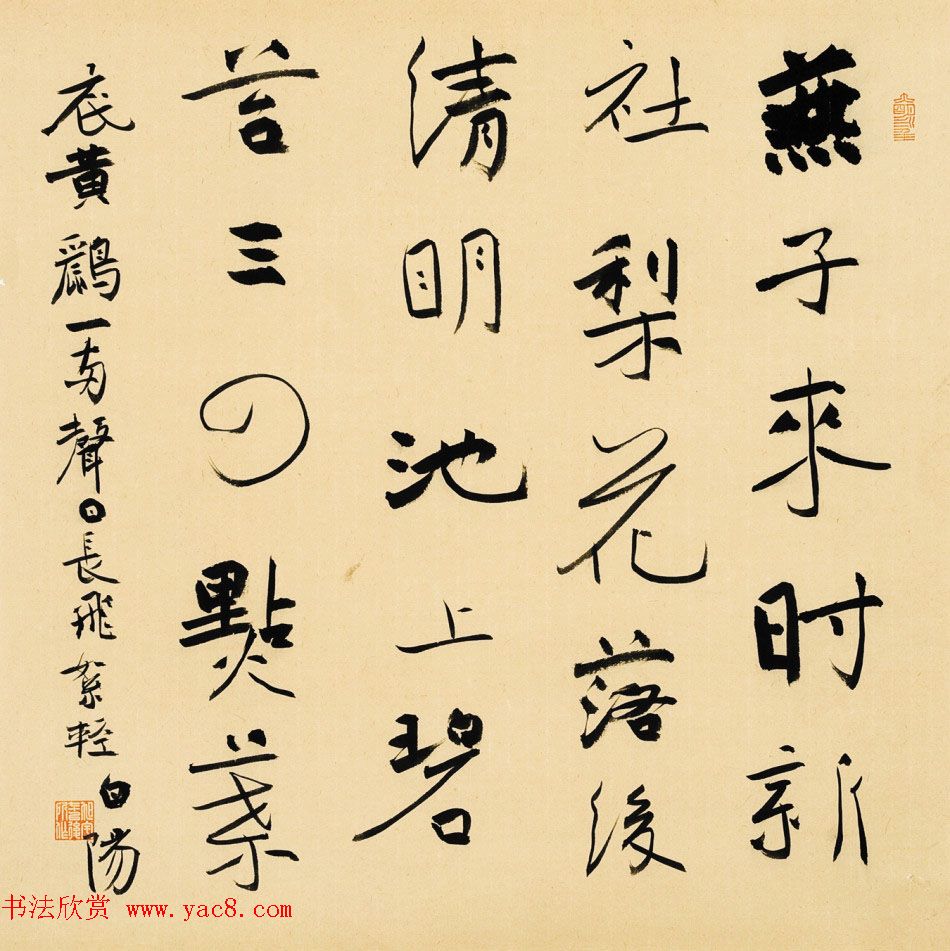 燕子來时新
社梨花落後
清明池上碧
苔三四點葉
底黃鸝一兩聲日長飛絮輕
白陽
书法欣赏 www.yac8.com